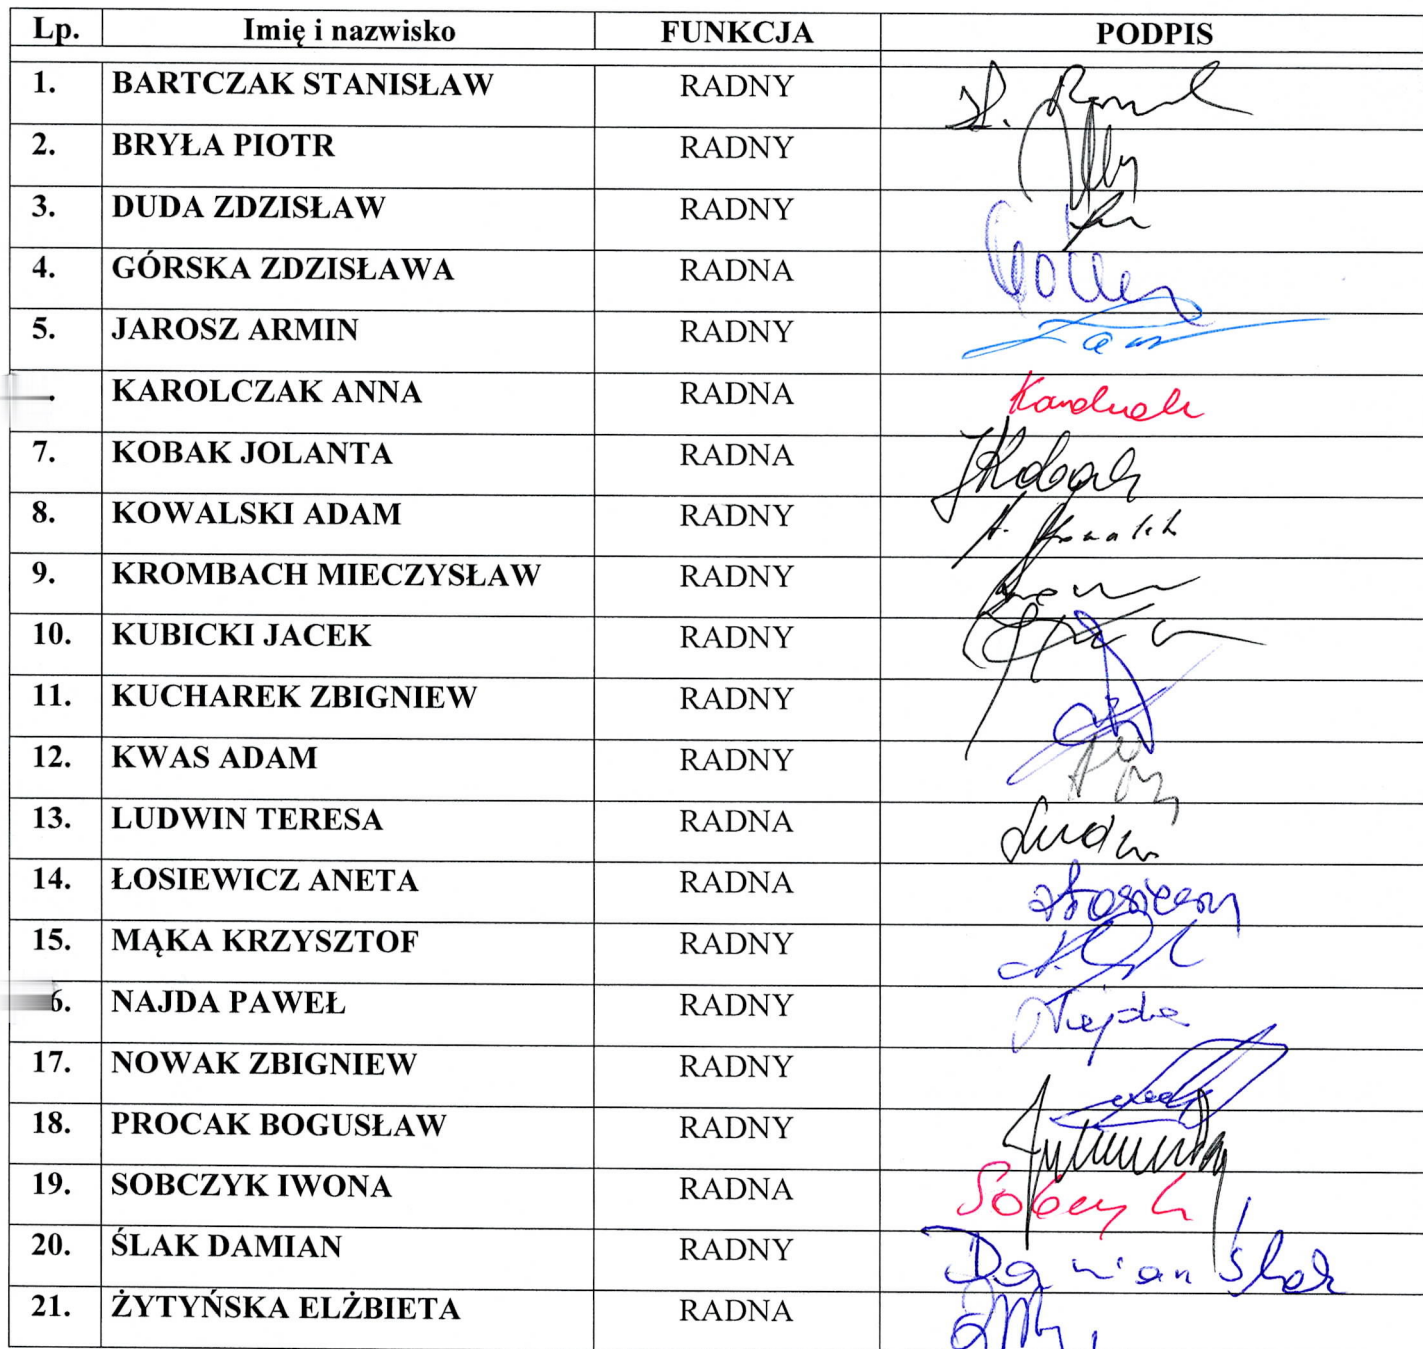 Lp. Imię i nazwisko FUNKCJA PODPIS
1. BARTCZAK STANISŁAW RADNY
2. BRYŁA PIOTR RADNY
3. DUDA ZDZISŁAW RADNY
4. GÓRSKA ZDZISŁAWA RADNA
5. JAROSZ ARMIN RADNY
. KAROLCZAK ANNA RADNA
7. KOBAK JOLANTA RADNA JKobak
8. KOWALSKI ADAM RADNY A. Kowalski
9. KROMBACH MIECZYSŁAW RADNY
10. KUBICKI JACEK RADNY
11. KUCHAREK ZBIGNIEW RADNY
12. KWAS ADAM RADNY
13. LUDWIN TERESA RADNA
14. ŁOSIEWICZ ANETA RADNA
15. MĄKA KRZYSZTOF RADNY
6. NAJDA PAWEŁ RADNY Najda
17. NOWAK ZBIGNIEW RADNY
18. PROCAK BOGUSŁAW RADNY
19. SOBCZYK IWONA RADNA Sobczyk
20. ŚLAK DAMIAN RADNY Damian Ślak
21. ŻYTYŃSKA ELŻBIETA RADNA